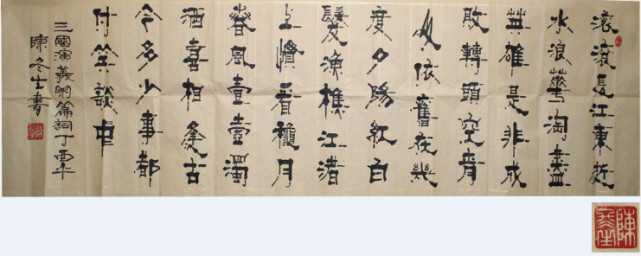 滾滾長江東逝
水浪華淘盡
英雄是非成
敗轉頭空青
山依舊在幾
度夕陽紅白
髮漁樵江渚
上慣看穐月
春風壹壺濁
酒喜相逢古
今多少事都
付笑談中
三國演義開篇詞丁酉年
陳冬生書